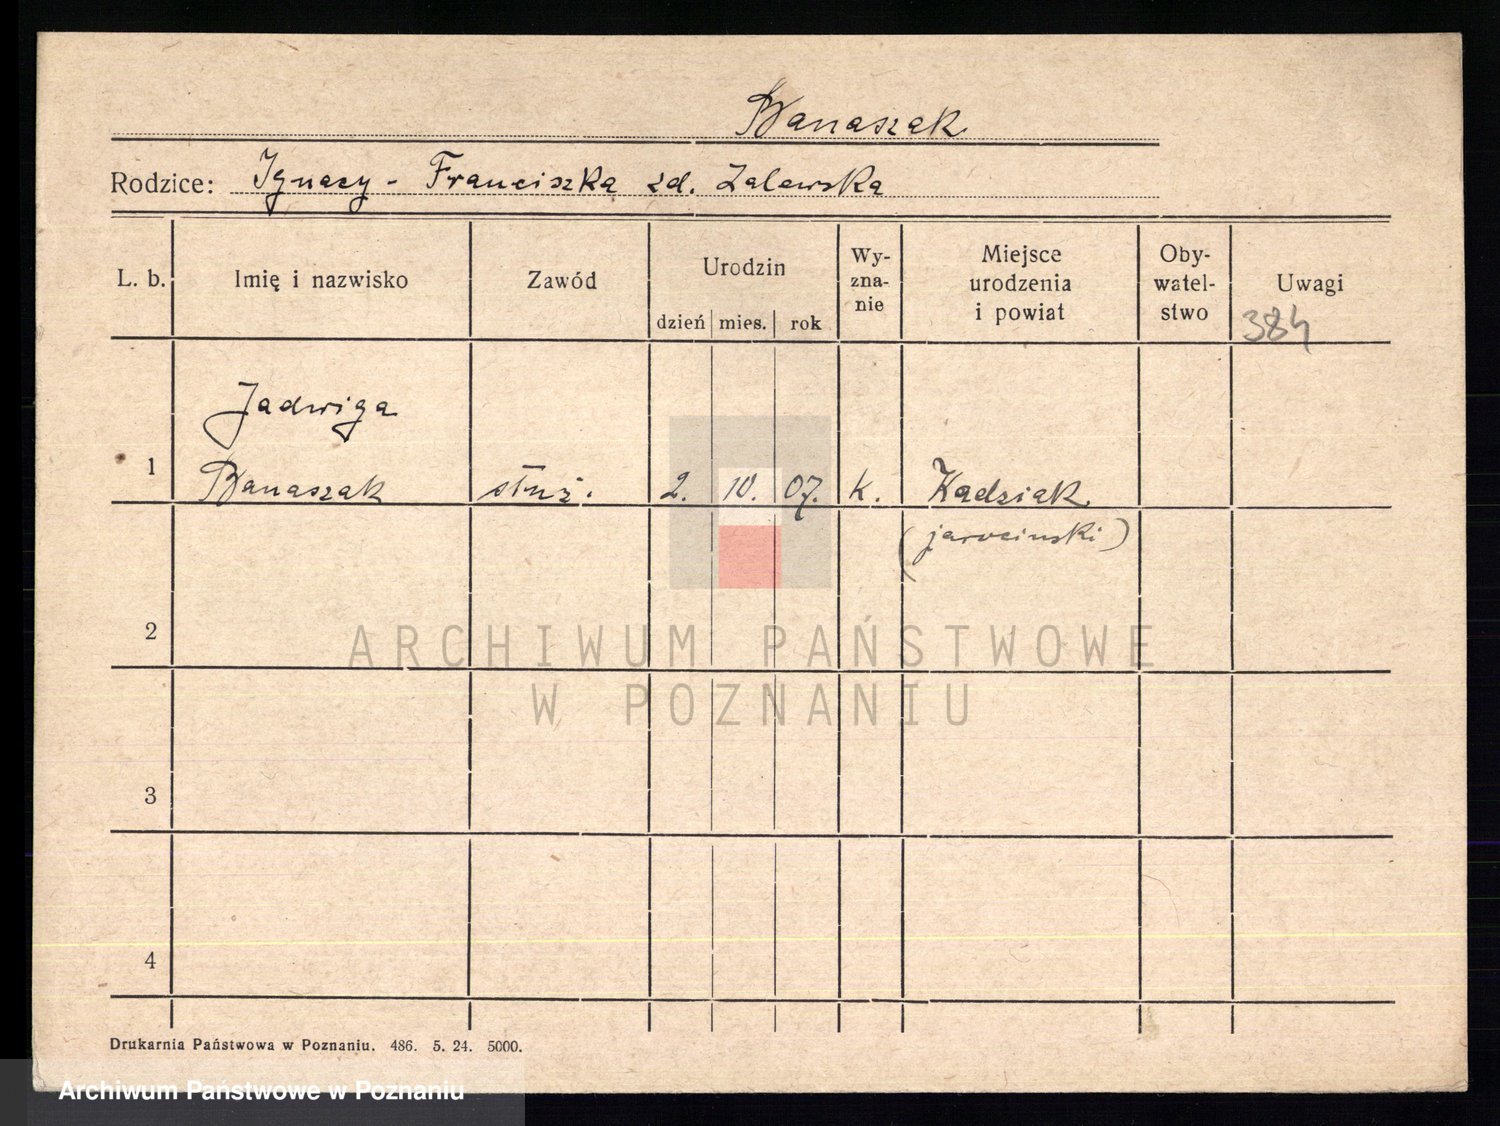 Banaszak
Rodzice: Ignacy - Franciszka zd. Zalewska
L. b. Imię i nazwisko Zawód Urodzin dzień mies. rok Wy-zna-nie Miejsce urodzenia i powiat Oby-watel-stwo Uwagi
384
Jadwiga
1 Banaszak służ. 2. 10. 07. k. Kadziak
(jarociński)
2
ARCHIWUM PAŃSTWOWE
W POZNANIU
3
4
Drukarnia Państwowa w Poznaniu. 486. 5. 24. 5000.
Archiwum Państwowe w Poznaniu